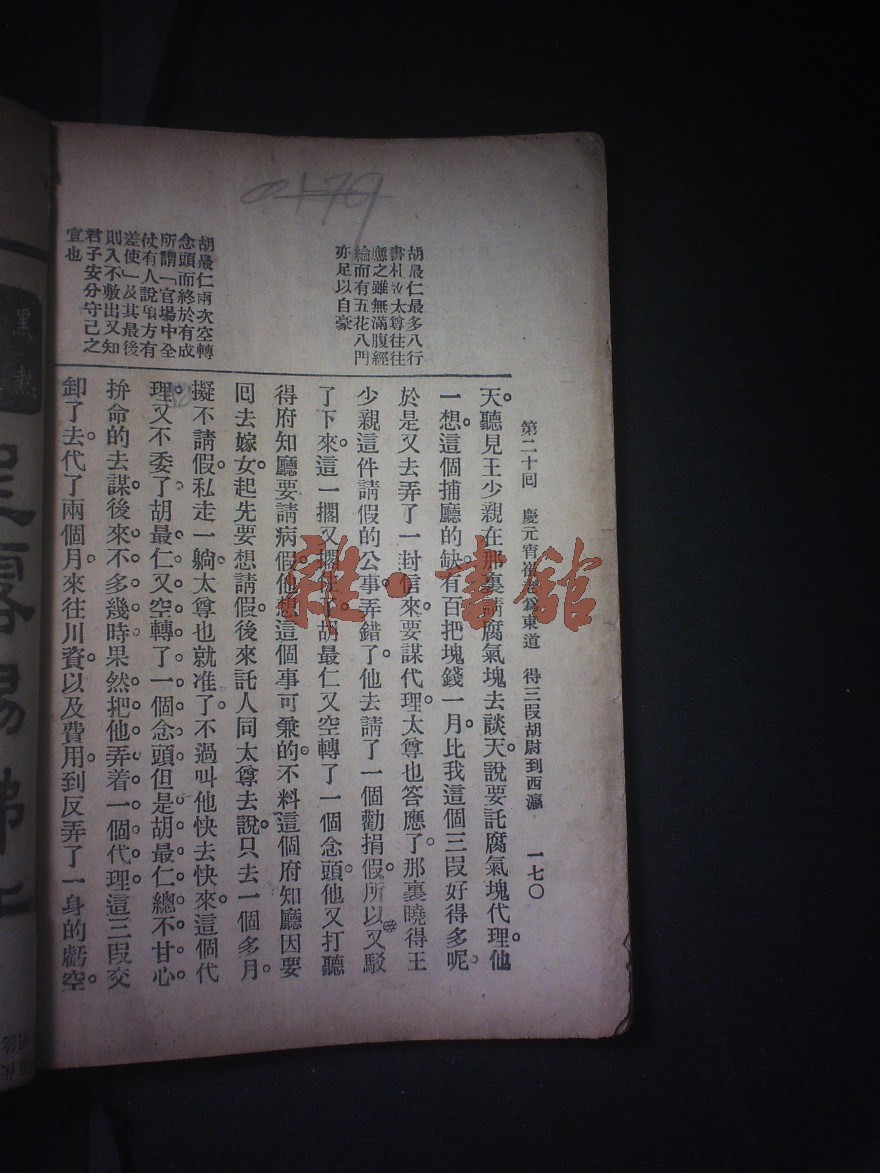 0179
第二十回 慶元宵 爲東道 得三段胡尉到西瀛 一七〇
胡最仁最多八行
書札故太尊往往
應之雖無滿腹經
綸而有五花八門
亦足以自豪
胡最仁兩次空轉
念頭而終於有成
所謂「官場中全
仗有人說項方有
差使」及其最後
則入不敷出又知
君子安分守己之
宜也
天。聽見王少親在那裏請腐氣塊去談天。說要託腐氣塊代理。他
一想。這個捕廳的缺。有百把塊錢一月。比我這個三段好得多呢。
於是又去弄了一封信來。要謀代理。太尊也答應了。那裏曉得王
少親這件請假的公事。弄錯了。他去請了一個勸捐假。所以又駁
了下來。這一擱又擱住了。胡最仁又空轉了一個念頭。他又打聽
得府知廳要請病假。他想這個事可乗的。不料這個府知廳因要
回去嫁女。起先要想請假。後來託人同太尊去說。只去一個多月。
擬不請假。私走一躺。太尊也就准了。不過叫他快去快來。這個代
理。又不委了。胡最仁又空轉了一個念頭。但是胡最仁總不甘心。
拚命的去謀。後來不多幾時。果然把他弄着一個代理。這三段交
卸了去。代了兩個月。來往川資。以及費用。到反弄了一身的虧空。
雜·書館